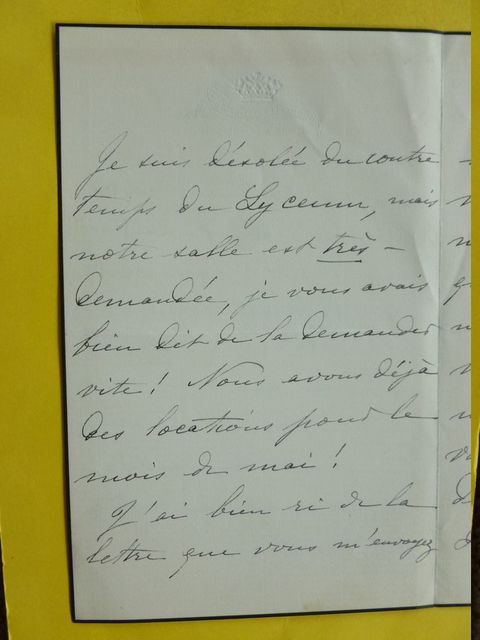 Je suis désolée du contre
temps du Lyceum, mais
notre salle est très-
demandée, je vous avais
bien dit de la demander
vite! Nous avons déjà
des locations pour le
mois de mai!
J'ai bien ri de la
lettre que vous m'envoyez